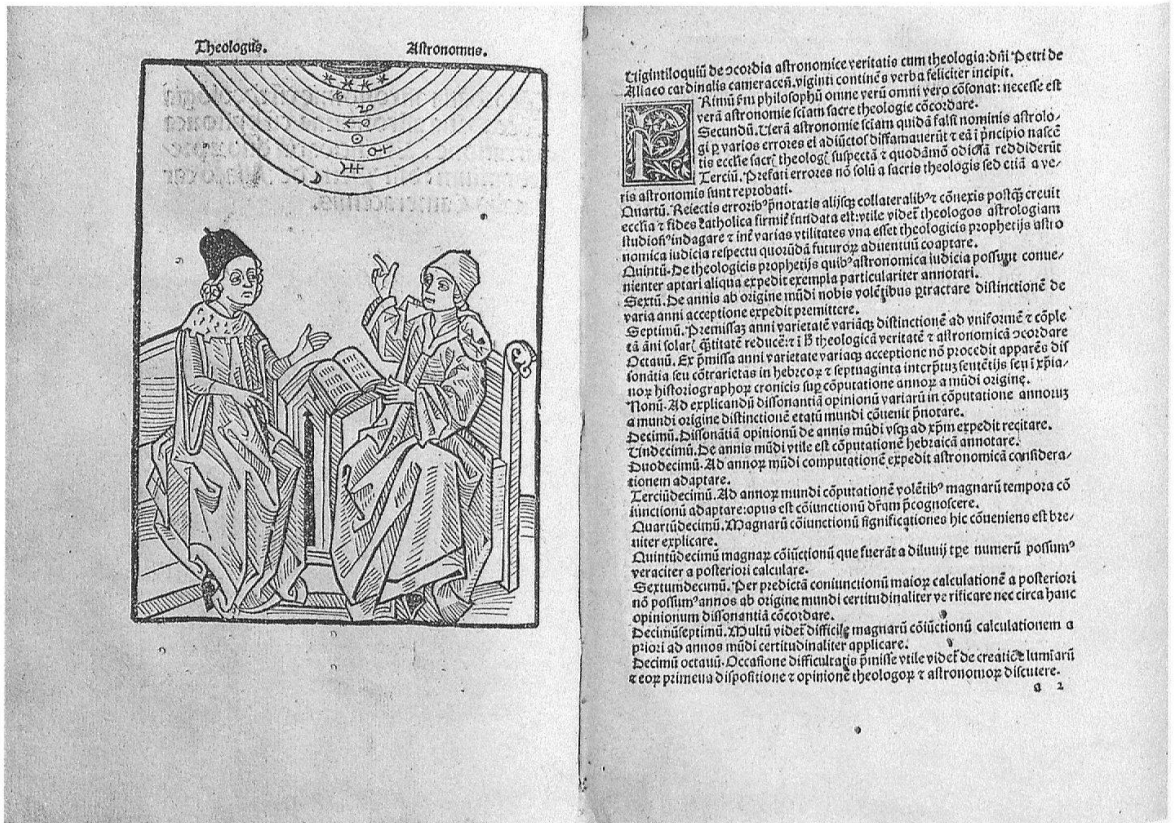 Theologus. Astronomus.
Uigintiloquiū de ↄcordia astronomice veritatis cum theologia: dñi Petri de
Alliaco cardinalis cameraceñ. viginti continēs verba feliciter incipit.
PRimū ẜm philosophū omne verū omni vero cōsonat: necesse est
verā astronomie sciam sacre theologie cōcordare.
Secundū. Uerā astronomie sciam quidā falsi nominis astrolo⸗
gi ꝑ varios errores ei adiūctos diffamauerūt ⁊ eā ī pͥncipio nascē⸗
tis ecclie sacrꝭ theologꝭ suspectā ⁊ quodāmō odiosā reddiderūt
Terciū. Prefati errores nō solū a sacris theologis sed etiā a ve⸗
ris astronomis sunt reprobati.
Quartū. Reiectis erroribꝰ p̄notatis alijsqꝫ collateralibꝰ ⁊ cōnexis postqꝫ̄ creuit
ecclia ⁊ fides catholica firmiť fundata est: vtile videť theologos astrologiam
studiosiꝰ indagare ⁊ inť varias vtilitates vna esset theologicis prophetijs astro
nomica iudicia respectu quorūdā futuroꝝ aduentuū coaptare.
Quintū. De theologicis prophetijs quibꝰ astronomica iudicia possunt conue⸗
nienter aptari aliqua expedit exempla particulariter annotari.
Sextū. De annis ab origine mūdi nobis volētibus ꝑtractare distinctionē de
varia anni acceptione expedit premittere.
Septimū. Premissaꝫ anni varietatē variāqꝫ distinctionē ad vniformē ⁊ cōple
tā āni solarꝭ q̄titatē reducē: ⁊ ī theologicā veritatē ⁊ astronomicā ↄcordare
Octauū. Ex p̄missa anni varietate variaqꝫ acceptione nō procedit apparēs dis
sonātia seu cōtrarietas in hebreoꝝ ⁊ septuaginta interp̄tuꝫ sentētijs seu ī xp̄ia⸗
noꝝ historiographoꝝ cronicis suꝑ cōputatione annoꝝ a mūdi origine.
Nonū. Ad explicandū dissonantiā opinionū variarū in cōputatione annoruꝫ
a mundi origine distinctionē etatū mundi cōuenit p̄notare.
Decimū. Dissonātiā opinionū de annis mūdi vsqꝫ ad xp̄m expedit recitare.
Undecimū. De annis mūdi vtile est cōputationē hebraicā annotare.
Duodecimū. Ad annoꝝ mūdi computationē expedit astronomicā considera⸗
tionem adaptare.
Terciūdecimū. Ad annoꝝ mundi cōputationē volētibꝰ magnarū tempora cō
iunctionū adaptare: opus est cōiunctionū dr̄am p̄cognoscere.
Quartūdecimū. Magnarū cōiunctionū significationes hic cōueniens est bre⸗
uiter explicare.
Quintūdecimū magnaꝝ cōiūctionū que fuerāt a diluuij tp̄e numerū possumꝰ
veraciter a posteriori calculare.
Sextumdecimū. Per predictā coniunctionū maioꝝ calculationē a posteriori
nō possumꝰ annos ab origine mundi certitudinaliter verificare nec circa hanc
opinionum dissonantiā cōcordare.
Decimūseptimū. Multū videť difficile magnarū cōiūctionū calculationem a
priori ad annos mūdi certitudinaliter applicare.
Decimū octauū. Occasione difficultatis p̄misse vtile videť de creatiōe lumīarū
⁊ eoꝝ primeua dispositione ⁊ opinionē theologoꝝ ⁊ astronomoꝝ discutere.
a 2